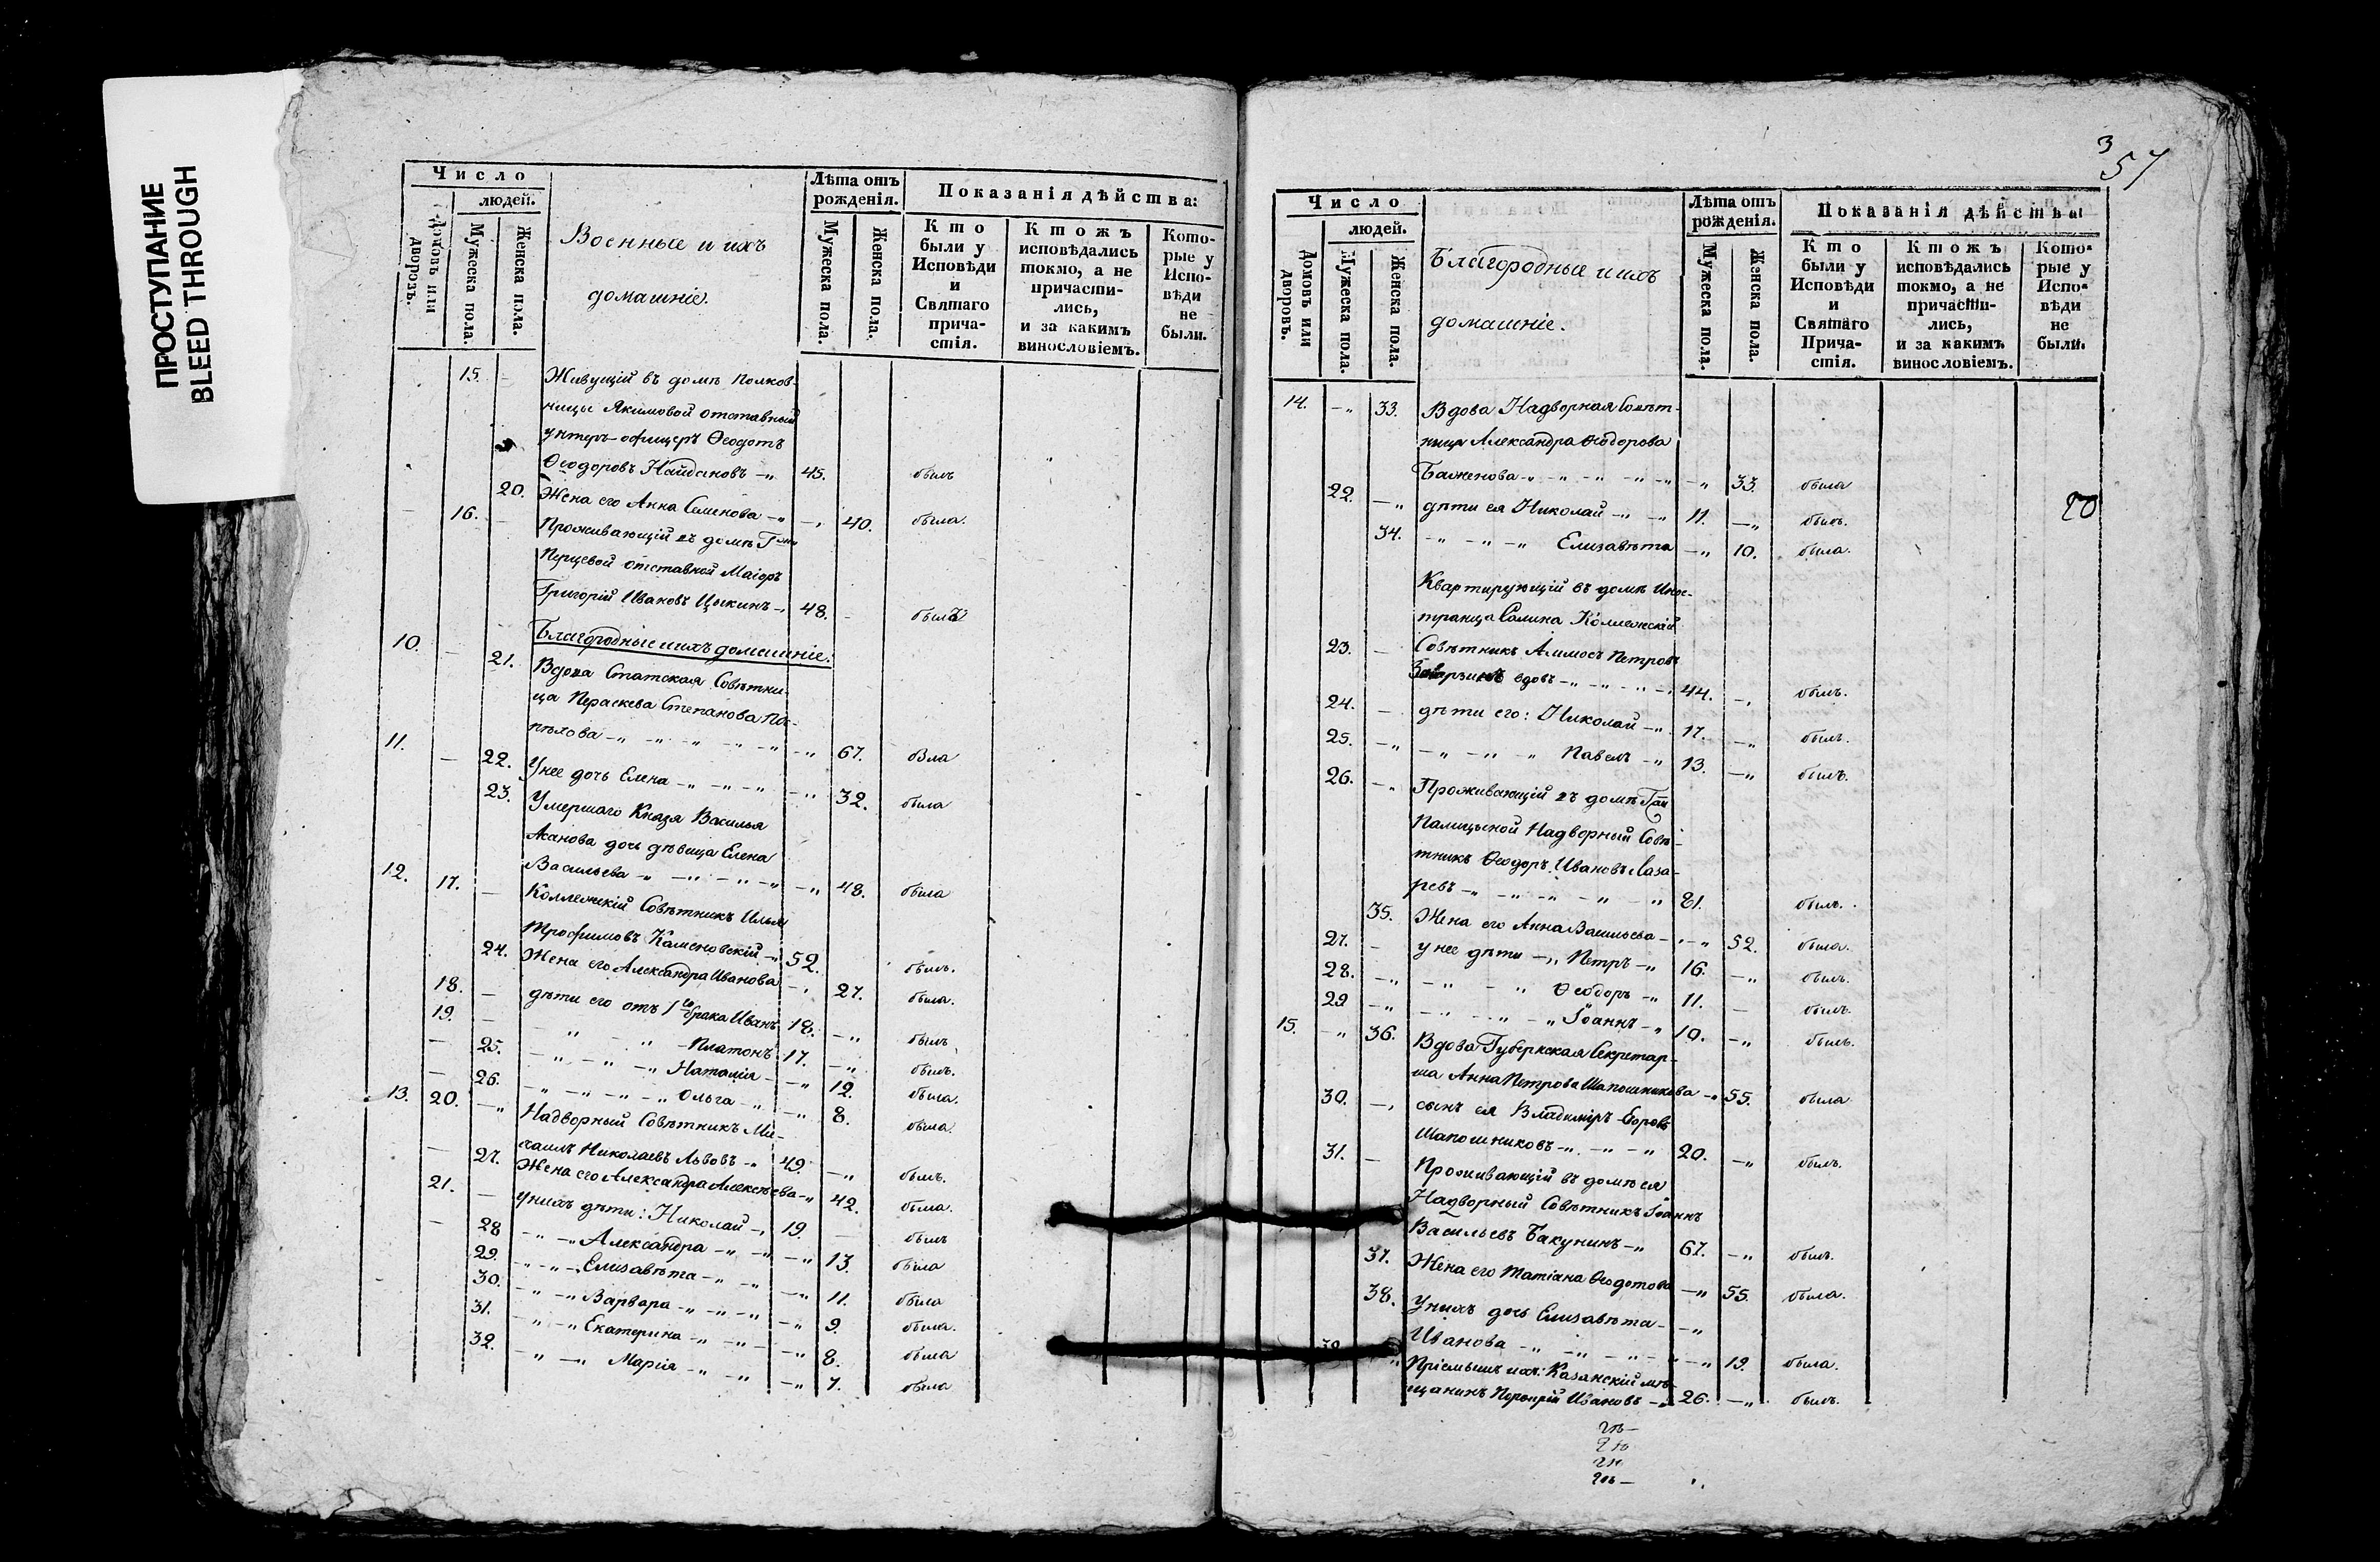 ПРОСТУПАНИЕ
BLEED THROUGH
Число
людей.
Домовъ или дворовъ.
Мужеска пола.
Женска пола.
Военные и ихъ
домашніе.
Лѣта отъ рожденія.
Мужеска пола.
Женска пола.
Показанія дѣйства:
Кто были у Исповѣди и Святаго причастія.
Ктожъ исповѣдались токмо, а не причастились, и за какимъ винословіемъ.
Которые у Исповѣди не были.
15. – Живущій въ домѣ Полков-
ницы Якимовой отставный
унтеръ-офицеръ Ѳеодотъ
Ѳеодоровъ Найдановъ –„ 45. былъ
20. Жена его Анна Семенова –„ –„ 40. была.
16. – Проживающій въ домѣ Г–жи
Перцевой отставной Маіоръ
Григорій Ивановъ Цыкинъ –„ 48. – былъ
Благородные и ихъ домашніе.
10. – 21. Вдова Статская Совѣтни-
ца Параскева Степанова По-
пѣхова –„ –„ –„ –„ –„ –„ 67. была
11. – 22. У нее дочь Елена –„ –„ –„ –„ 32. была
23. Умершаго Князя Василья
Асанова дочь дѣвица Елена
Васильева –„ –„ –„ –„ –„ 48. была
12. 17. – Коллежскій Совѣтникъ Илья
Трофимовъ Каменовскій –„ 52. былъ.
24. Жена его Александра Иванова –„ 27. была.
18. – дѣти его отъ 1го брака Иванъ 18. –„ былъ
19. – –„ –„ Платонъ 17. –„ былъ.
– 25. –„ –„ –„ Наталія –„ 12. была.
– 26. –„ –„ –„ Ольга –„ –„ 8. была.
13. 20. –„ Надворный Совѣтникъ Ми-
хаилъ Николаевъ Львовъ –„ 49. –„ былъ.
– 27. Жена его Александра Алексѣева –„ 42. была.
21. – у нихъ дѣти: Николай –„ 19. – былъ
– 28 –„ –„ Александра –„ –„ –„ 13. была
29. –„ –„ Елизавѣта –„ –„ –„ 11. была
30. –„ –„ Варвара –„ –„ –„ –„ 9. была.
31. –„ –„ Екатерина –„ –„ –„ 8. была
32. –„ –„ Марія –„ –„ –„ 7. была
3
57
Число
людей.
Домовъ или дворовъ.
Мужеска пола.
Женска пола.
Благородные и ихъ
домашніе.
Лѣта отъ рожденія.
Мужеска пола.
Женска пола.
Показанія дѣйства:
Кто были у Исповѣди и Святаго Причастія.
Ктожъ исповѣдались токмо, а не причастились, и за какимъ винословіемъ.
Которые у Исповѣди не были.
14. –„ 33. Вдова Надворная Совѣт-
ница Александра Ѳеодорова
Баженова –„ –„ –„ –„ –„ –„ 33. была
22. –„ дѣти ея Николай –„ –„ 11. –„ былъ.
34. –„ –„ –„ Елизавѣта –„ 10. была.
Квартирующій въ домѣ Инос-
транца Салина Коллежскій
23. – Совѣтникъ Петровъ
вдовъ –„ –„ –„ –„ 44. –„ былъ.
24. – дѣти его: Николай –„ 17. –„ былъ.
25. –„ –„ –„ –„ Павелъ –„ 13. –„ былъ.
26. –„ Проживающій въ домѣ Г–жи
Палицыной Надворный Совѣ-
тникъ Ѳеодоръ Ивановъ Лаза-
ревъ –„ –„ –„ –„ –„ 81. былъ.
35. Жена его Анна Васильева –„ –„ 52. была.
27. – у нее дѣти –„ Петръ –„ 16. –„ былъ.
28. –„ –„ –„ Ѳеодоръ –„ 11. – былъ.
29 –„ –„ –„ –„ Іоаннъ –„ 10. –„ былъ.
15. –„ 36. Вдова Губернская Секретар-
ша Анна Петрова Шапошникова –„ 55. была
30. –„ сынъ ея Владиміръ Егоровъ
Шапошниковъ –„ –„ –„ 20. –„ былъ.
31. – Проживающій въ домѣ ея
Надворный Совѣтникъ Іоаннъ
Васильевъ Бакунинъ –„ 67. –„ былъ.
37. Жена его Татіана Ѳеодотова –„ 55. была.
38. У нихъ дочь Елизавѣта –„
Иванова –„ –„ –„ –„ –„ 19. была.
32. „ Пріемышъ ихъ Казанскій мѣ-
щанинъ Порфирій Ивановъ –„ 26. –„ былъ.